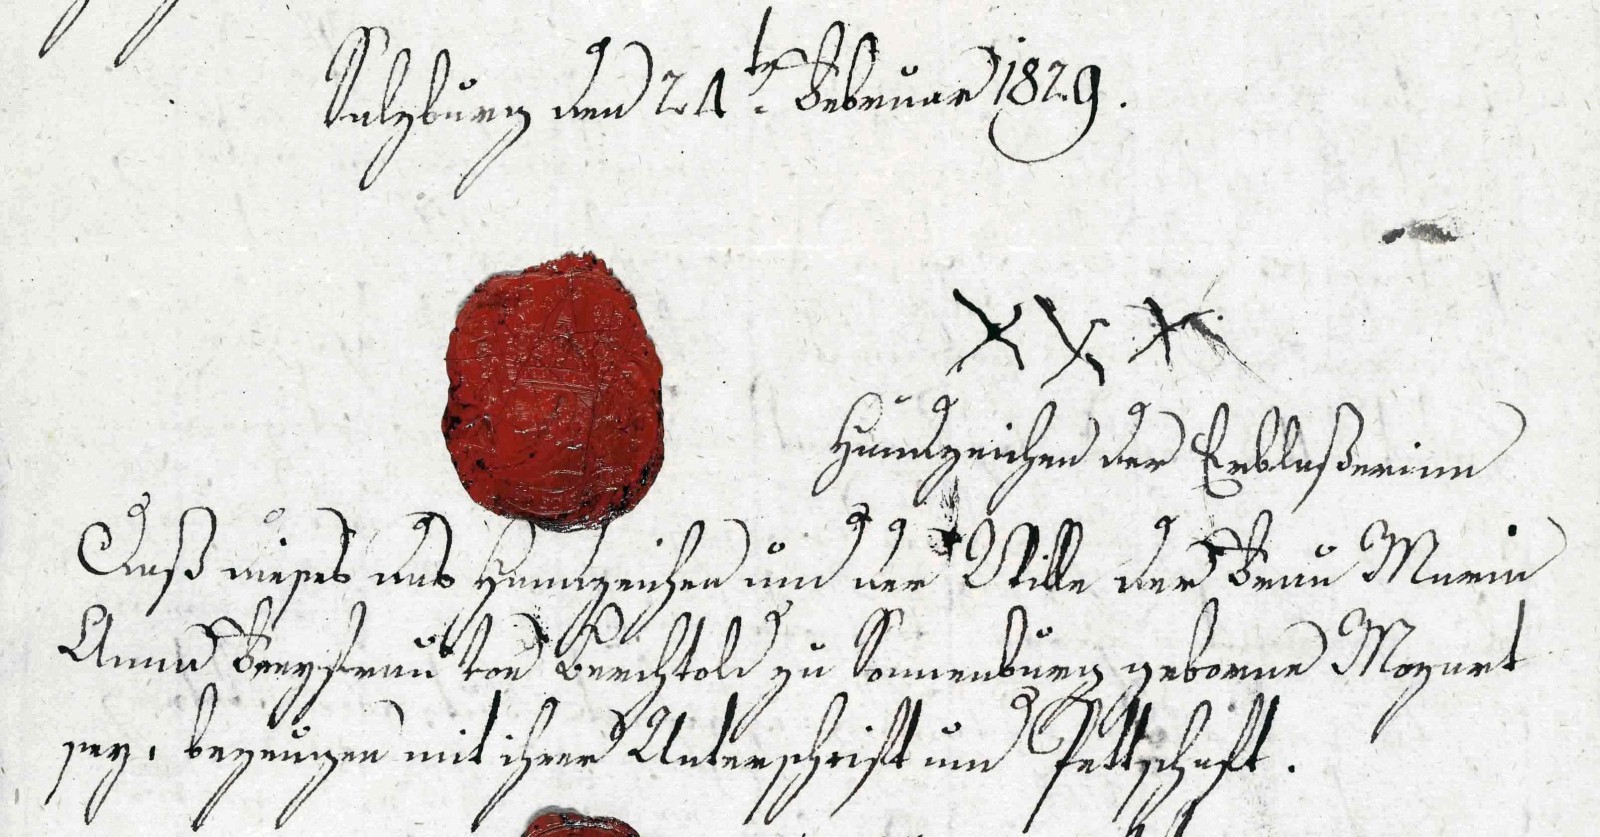 Salzburg den 24te Februar 1829.
X X X
Handzeichen der Erblaßerinn
Daß dieses das Handzeichen und der Wille der Frau Maria
Anna Freyfrau von Berchtold zu Sonnenburg geborne Mozart
sey, bezeugen mit ihrer Unterschrift und Pettschaft.